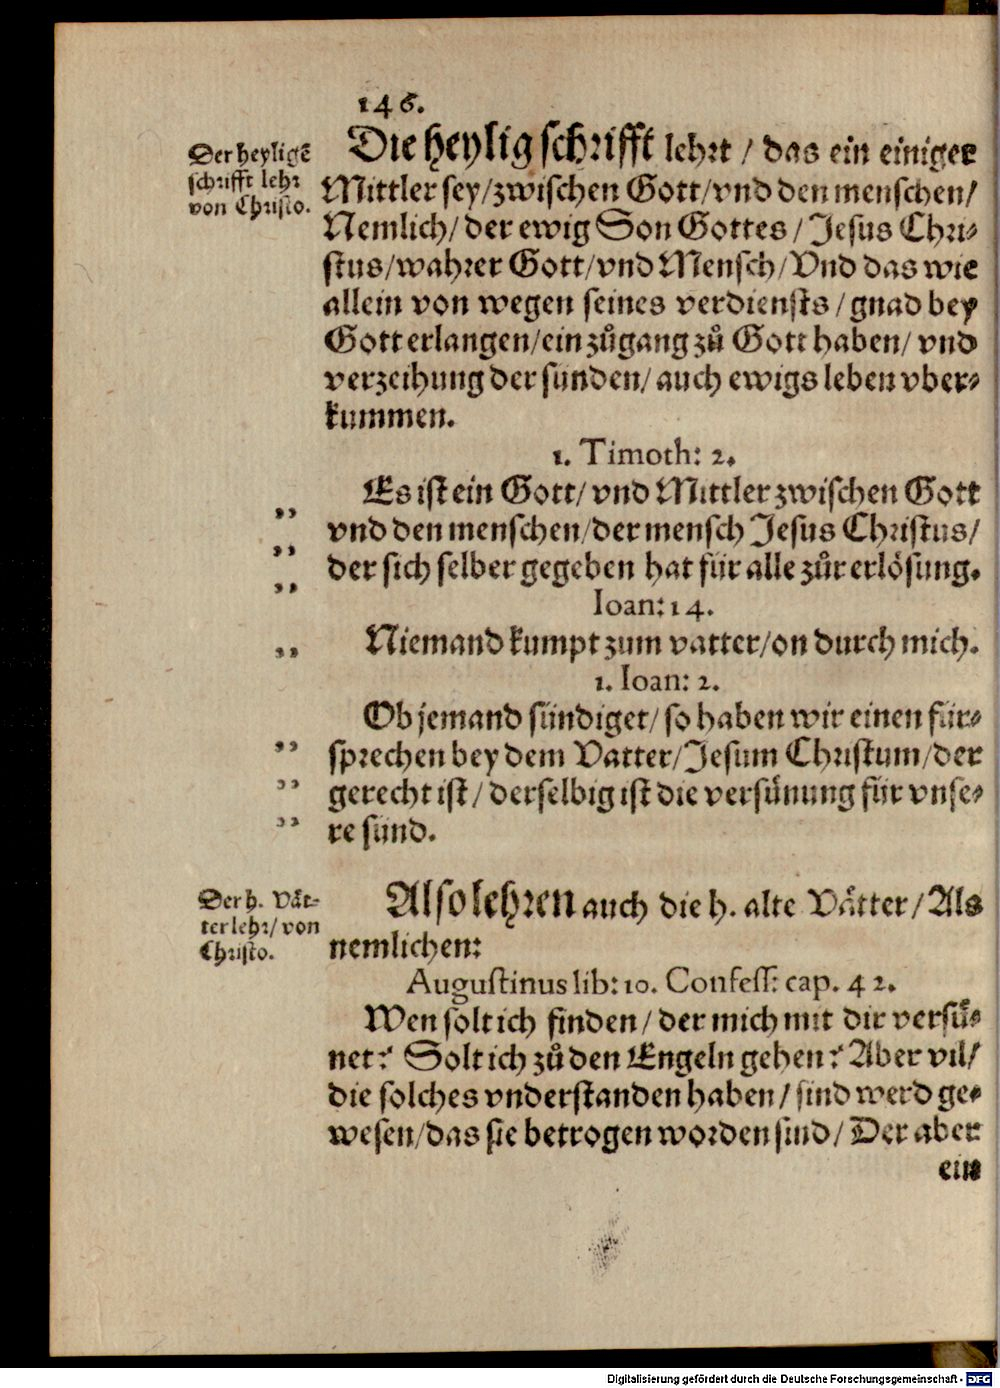 146.
Der heyligē
schrifft lehr
von Christo.
Die heylig schrifft lehrt / das ein einiger
Mittler sey / zwischen Gott / vnd den menschen /
Nemlich / der ewig Son Gottes / Jesus Chri-
stus / wahrer Gott / vnd Mensch / Vnd das wie
allein von wegen seines verdiensts / gnad bey
Gott erlangen / ein zůgang zů Gott haben / vnd
verzeihung der sünden / auch ewigs leben vber-
kummen.
1. Timoth: 2.
Es ist ein Gott / vnd Mittler zwischen Gott
,, vnd den menschen / der mensch Jesus Christus /
,, der sich selber gegeben hat für alle zůr erlösung.
,,
Ioan: 14.
,, Niemand kumpt zum vatter / on durch mich.
1. Ioan: 2.
Ob jemand sündiget / so haben wir einen für-
,, sprechen bey dem Vatter / Jesum Christum / der
,, gerecht ist / derselbig ist die versünung für vnse-
,, re sünd.
Der h. Vät-
ter lehr / von
Christo.
Also lehren auch die h. alte Vätter / Als
nemlichen:
Augustinus lib: 10. Confess: cap. 42.
Wen solt ich finden / der mich mit dir versü-
net? Solt ich zů den Engeln gehen? Aber vil /
die solches vnderstanden haben / sind werd ge-
wesen / das sie betrogen worden sind / Der aber
ein
Digitalisierung gefördert durch die Deutsche Forschungsgemeinschaft - DFG